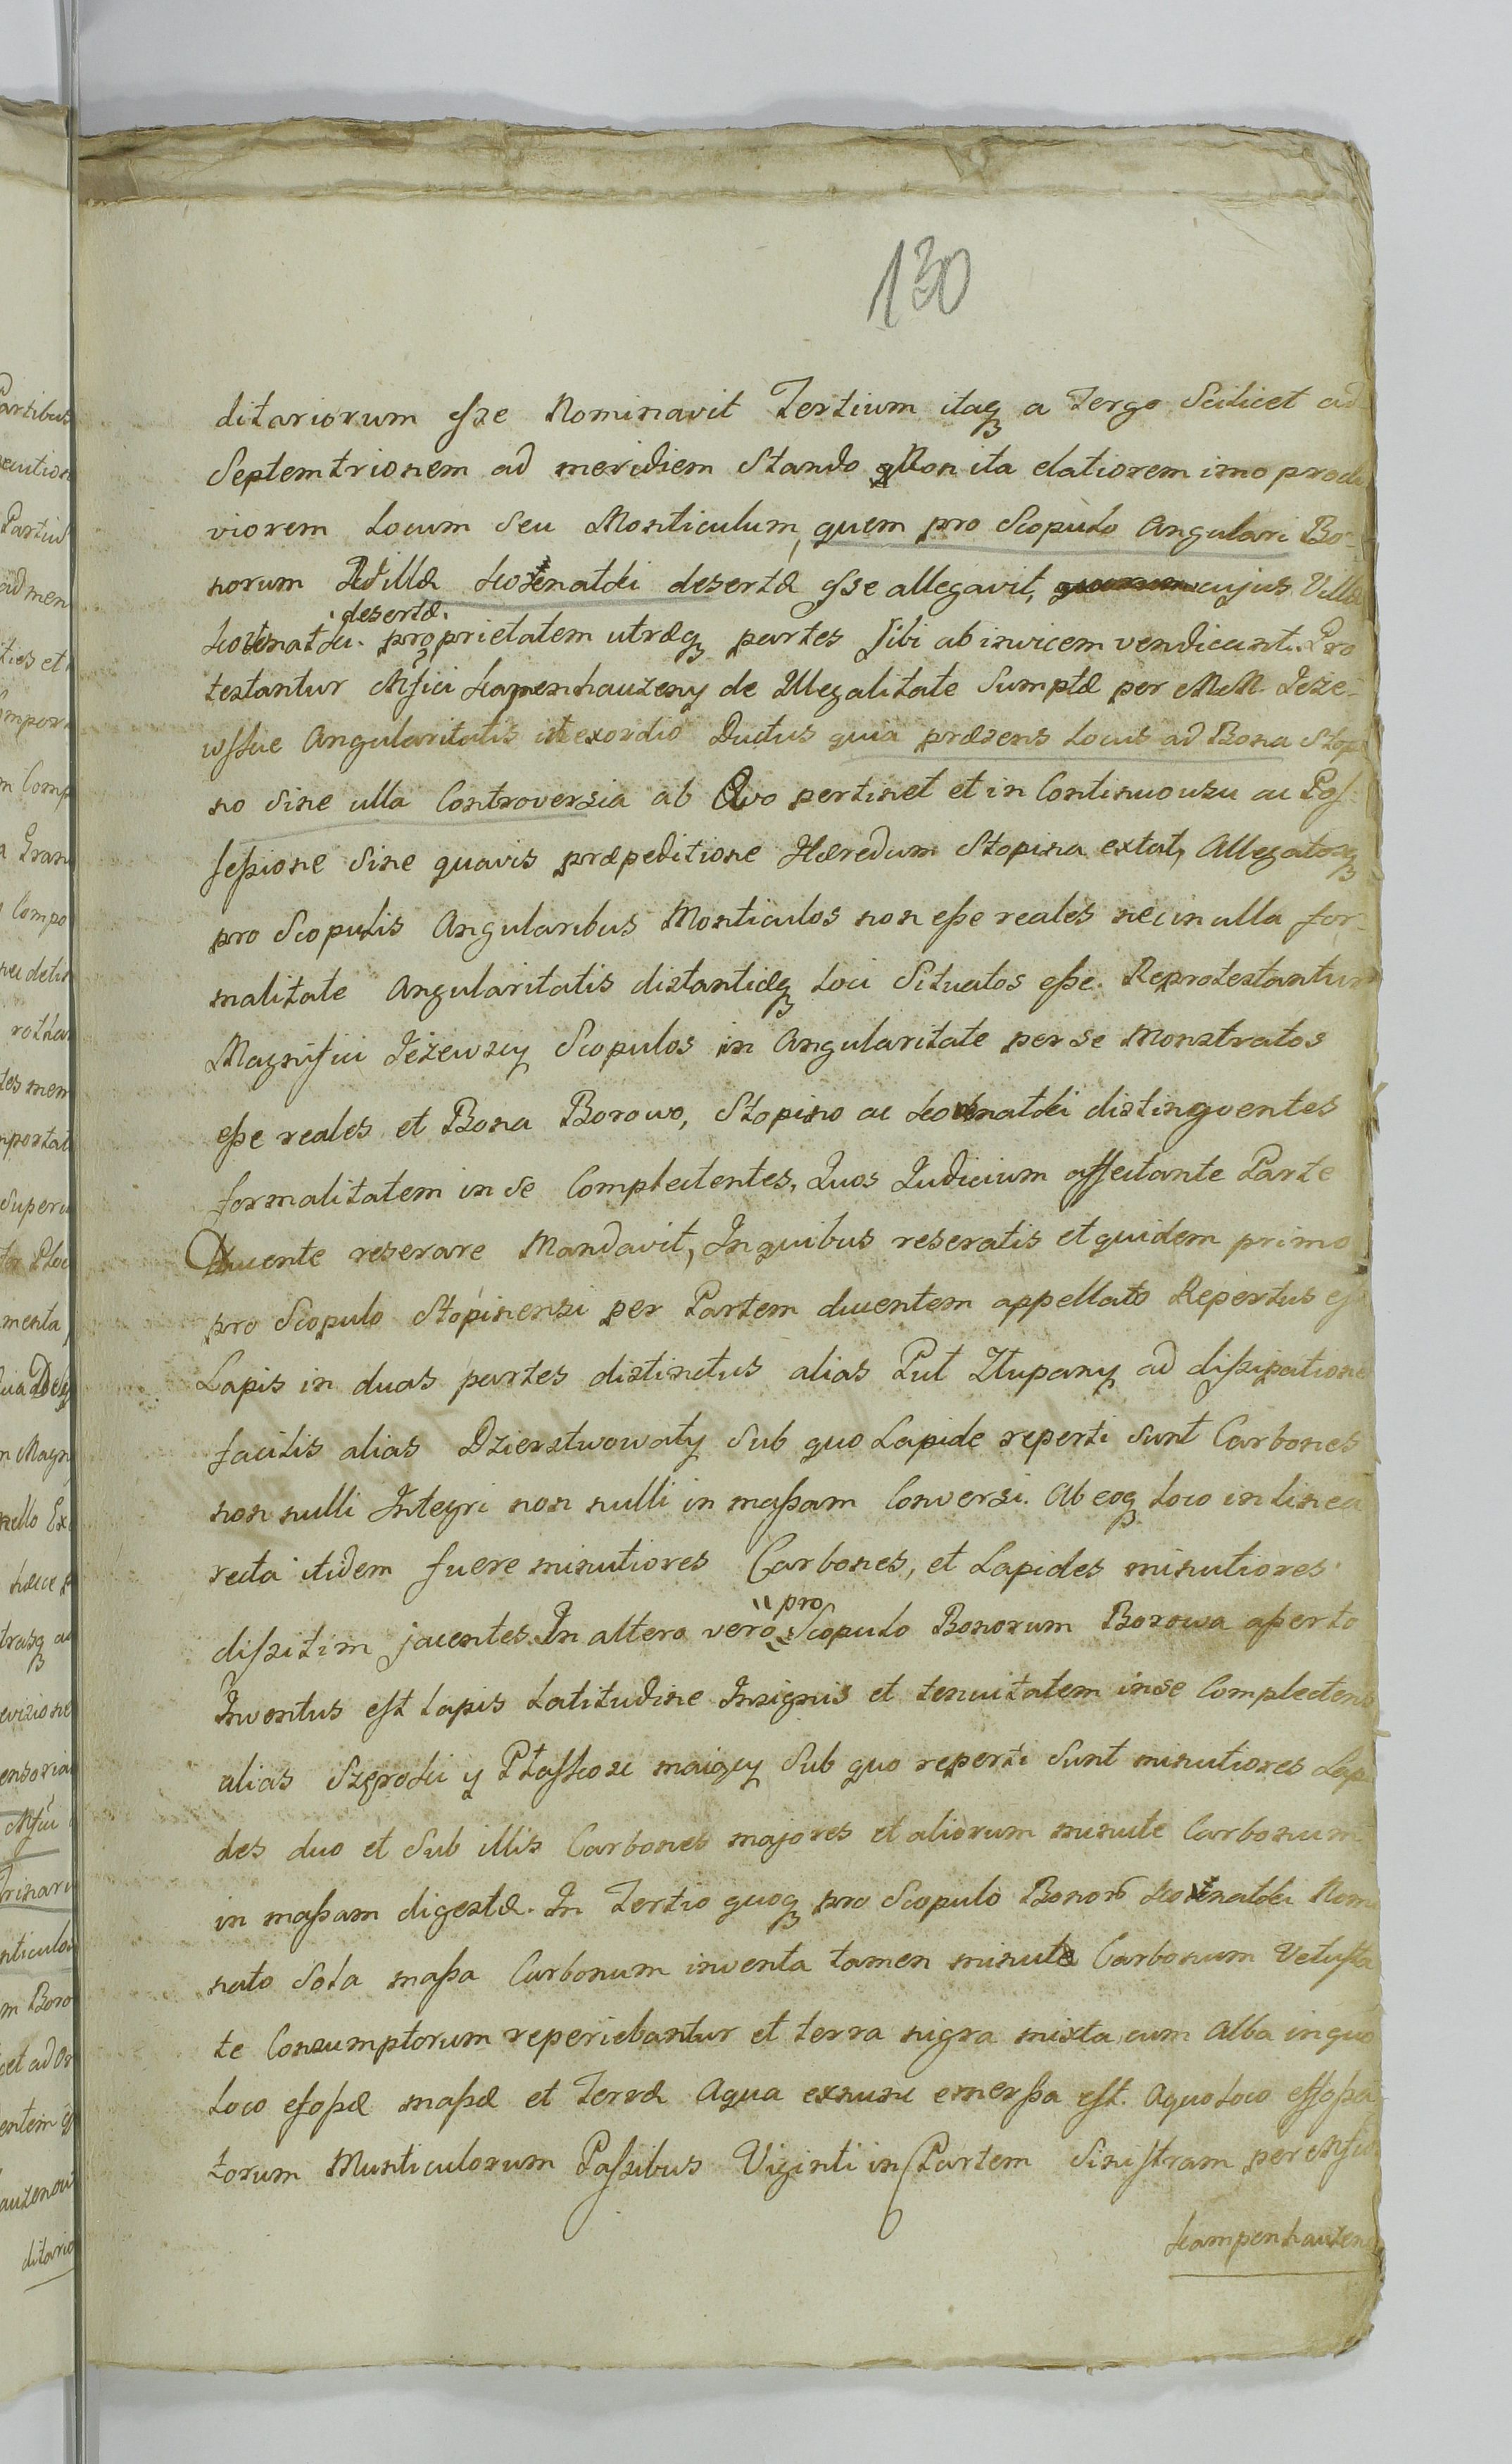 130
ditariorum esse Nominavit Tertium itaq₃ a Tergo Scilicet ad
Septemtrionem ad meridiem Stando Non ita elatiorem imo procli
viorem Locum Seu Monticulum, quem pro Scopulo Angulari Bo-
norum Villæ desertæ esse allegavit, cujus Villæ
desertæ
proprietatem utræq₃ partes sibi ab invicem vendicant. Pro
testantur Mfici Kampenhauzeny de Illegalitate Sumptæ per MM. Jeże-
wskie Angularitatis et exordio Ductus quia præsens Locus ad Bona Stopi
no Sine ulla Controversia ab Ævo pertinet et in Continuo usu ac Pos-
sessione Sine quavis præpeditione Hæredum Stopina extat, Allegatosq₃
pro Scopulis Angularibus Monticulos non esse reales nec in ulla for-
malitate Angularitatis distantiæq₃ Loci Situatos esse. Reprotestantur
Magnifici Jeżewscy Scopulos in Angularitate per se Monstratos
esse reales et Bona Borowo, Stopino ac distinguentes
formalitatem in se Complectentes, Quos Judicium affectante Parte
Ducente reserare Mandavit, In quibus reseratis et quidem primo
pro Scopulo Stopinensi per Partem ducentem appellato Repertus est
Lapis in duas partes distinctus alias Puł Złupany ad dissipatione
facilis alias Dzierstwowaty Sub quo Lapide reperti Sunt Carbones
non nulli Integri non nulli in massam Conversi. Ab eoq₃ Loco in linea
recta itidem fuere minutiores Carbones, et Lapides minutiores
dissitim jacentes. In altero vero Scopulo Bonorum Borowa aperto
pro
Inventus est Lapis Latitudine Insignis et tenuitatem in se Complectens
alias Szeroki y Płaskosc maiący Sub quo reperti Sunt minutiores Lapi
des duo et Sub illis Carbones majores et aliorum minute Carbonum
in massam digestæ. In Tertio quoq₃ pro Scopulo Bonorum Nomi
nato Sola massa Carbonum inventa tamen minute Carbonum Vetusta
te Consumptorum reperiebantur et terra nigra mixta cum Alba in quo
Loco effossæ massæ et Terræ Aqua exnunc emerssa est. A quo Loco effossa
torum Munticulorum Passibus Viginti in Partem Sinistram per Mficos
Kampenhauzen